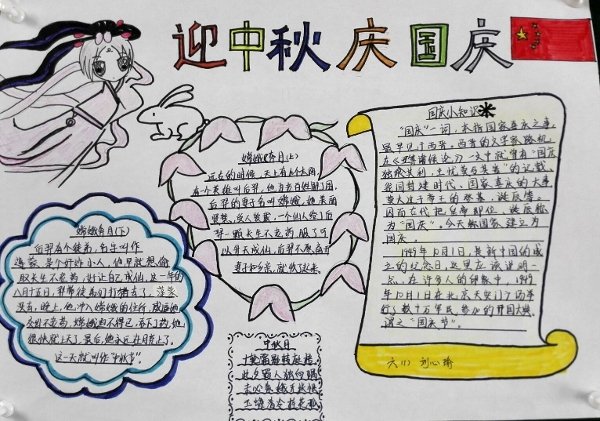 迎中秋 庆国庆
嫦娥奔月(上)
远在的时候,天上有十个太阳
有个英雄叫后羿,他
后羿的妻子名叫嫦娥,她美丽
贤慧,受人敬戴,一个仙人给了后
羿一颗长生不老药,服了可
以升天成仙,后羿不愿离开
嫦娥奔月(下)
后羿有个徒弟,名字叫作
逢蒙,是个奸诈小人,他早就想偷
服长生不老药,好让自己成仙,这一年的
八月十五日,羿带徒弟们打猎去了,逢蒙
没去,晚上,他冲入嫦娥的住所,威逼她
交出不老药,嫦娥迫不得已,吞下了药,她
很快就上天了,最后,她永远在月亮上了。
这一天就叫作"中秋节"
中秋月
此夕羁人独向隅
未必素娥无怅恨
玉蟾清冷桂花孤
国庆小知识
"国庆"一词,本指国家喜庆之事,
最早见于西晋,西晋的文学家陆机
在《五等诸侯论》一文中就曾有"国庆
独飨其利,主忧莫与其害"的记载
我国封建时代,国家喜庆的大事,
莫大过于帝王的登基、诞辰等。
因而古代把皇帝即位、诞辰称
为"国庆"。今天称国家建立为
国庆。
1949年10月1日,是新中国的成
立的纪念日,这里应该说明一
点,在许多人的印象中,1949
年10月1日在北京天安门广场举
行了数十万军民参加的开国大典
谓之"国庆节"。
六(1) 刘心瑜